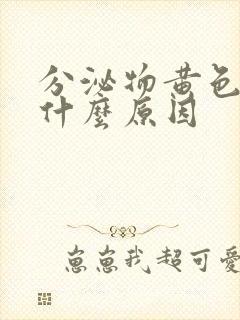 分泌物黄色
什麼原因
崽崽我超可愛